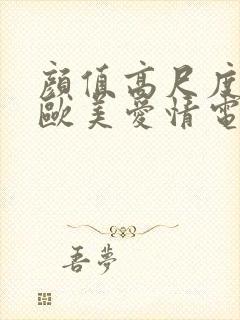 顔值高尺度
歐美愛情電
吾夢